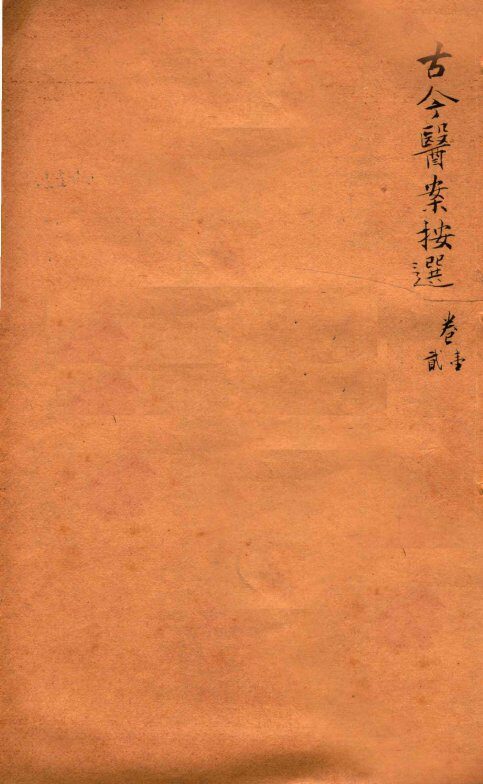 古今醫案按選
卷壹
貳